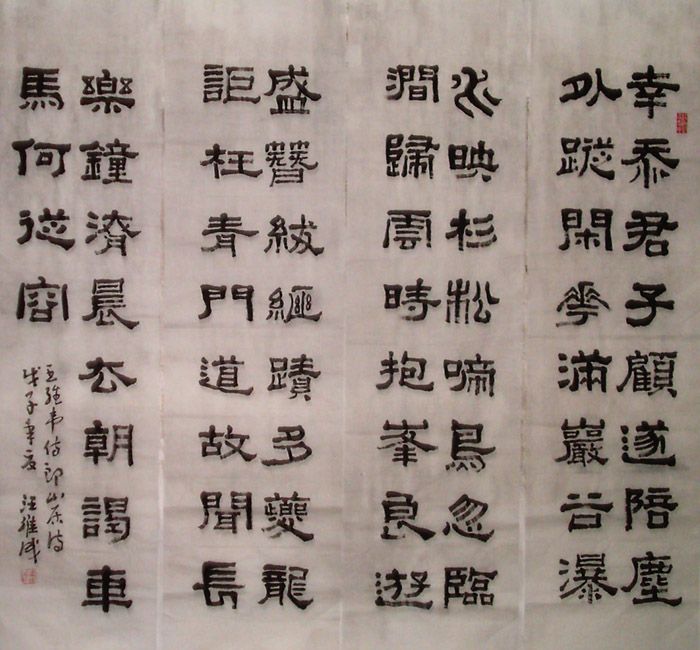 幸忝君子顧遂陪塵
外蹤閑花滿巖谷瀑
水映杉松啼鳥忽臨
澗歸雲時抱峯良遊
盛簪紱繼蹟多夔龍
詎枉青門道故聞長
樂鐘清晨去朝謁車
馬何從容
王維韋侍郎山居詩
戊子年夏 汪